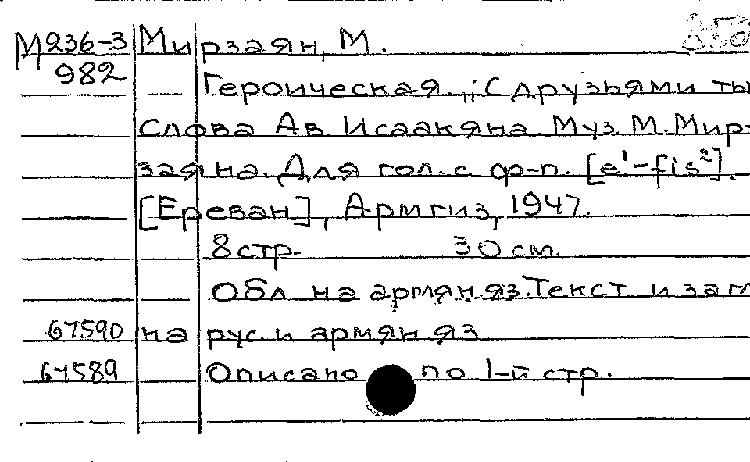 М236-3 Мирзаян, М.
982
Героическая. "С друзьями ты
Слова Ав. Исаакяна Муз. М. Мир-
заяна. Для гол. с ф-п. [e¹-fis²].
[Ереван], Армгиз, 1947.
8 стр. 30 см.
Обл на армян яз. Текст и заг
67590 на рус. и армян яз
67589 Описано по 1-й стр.